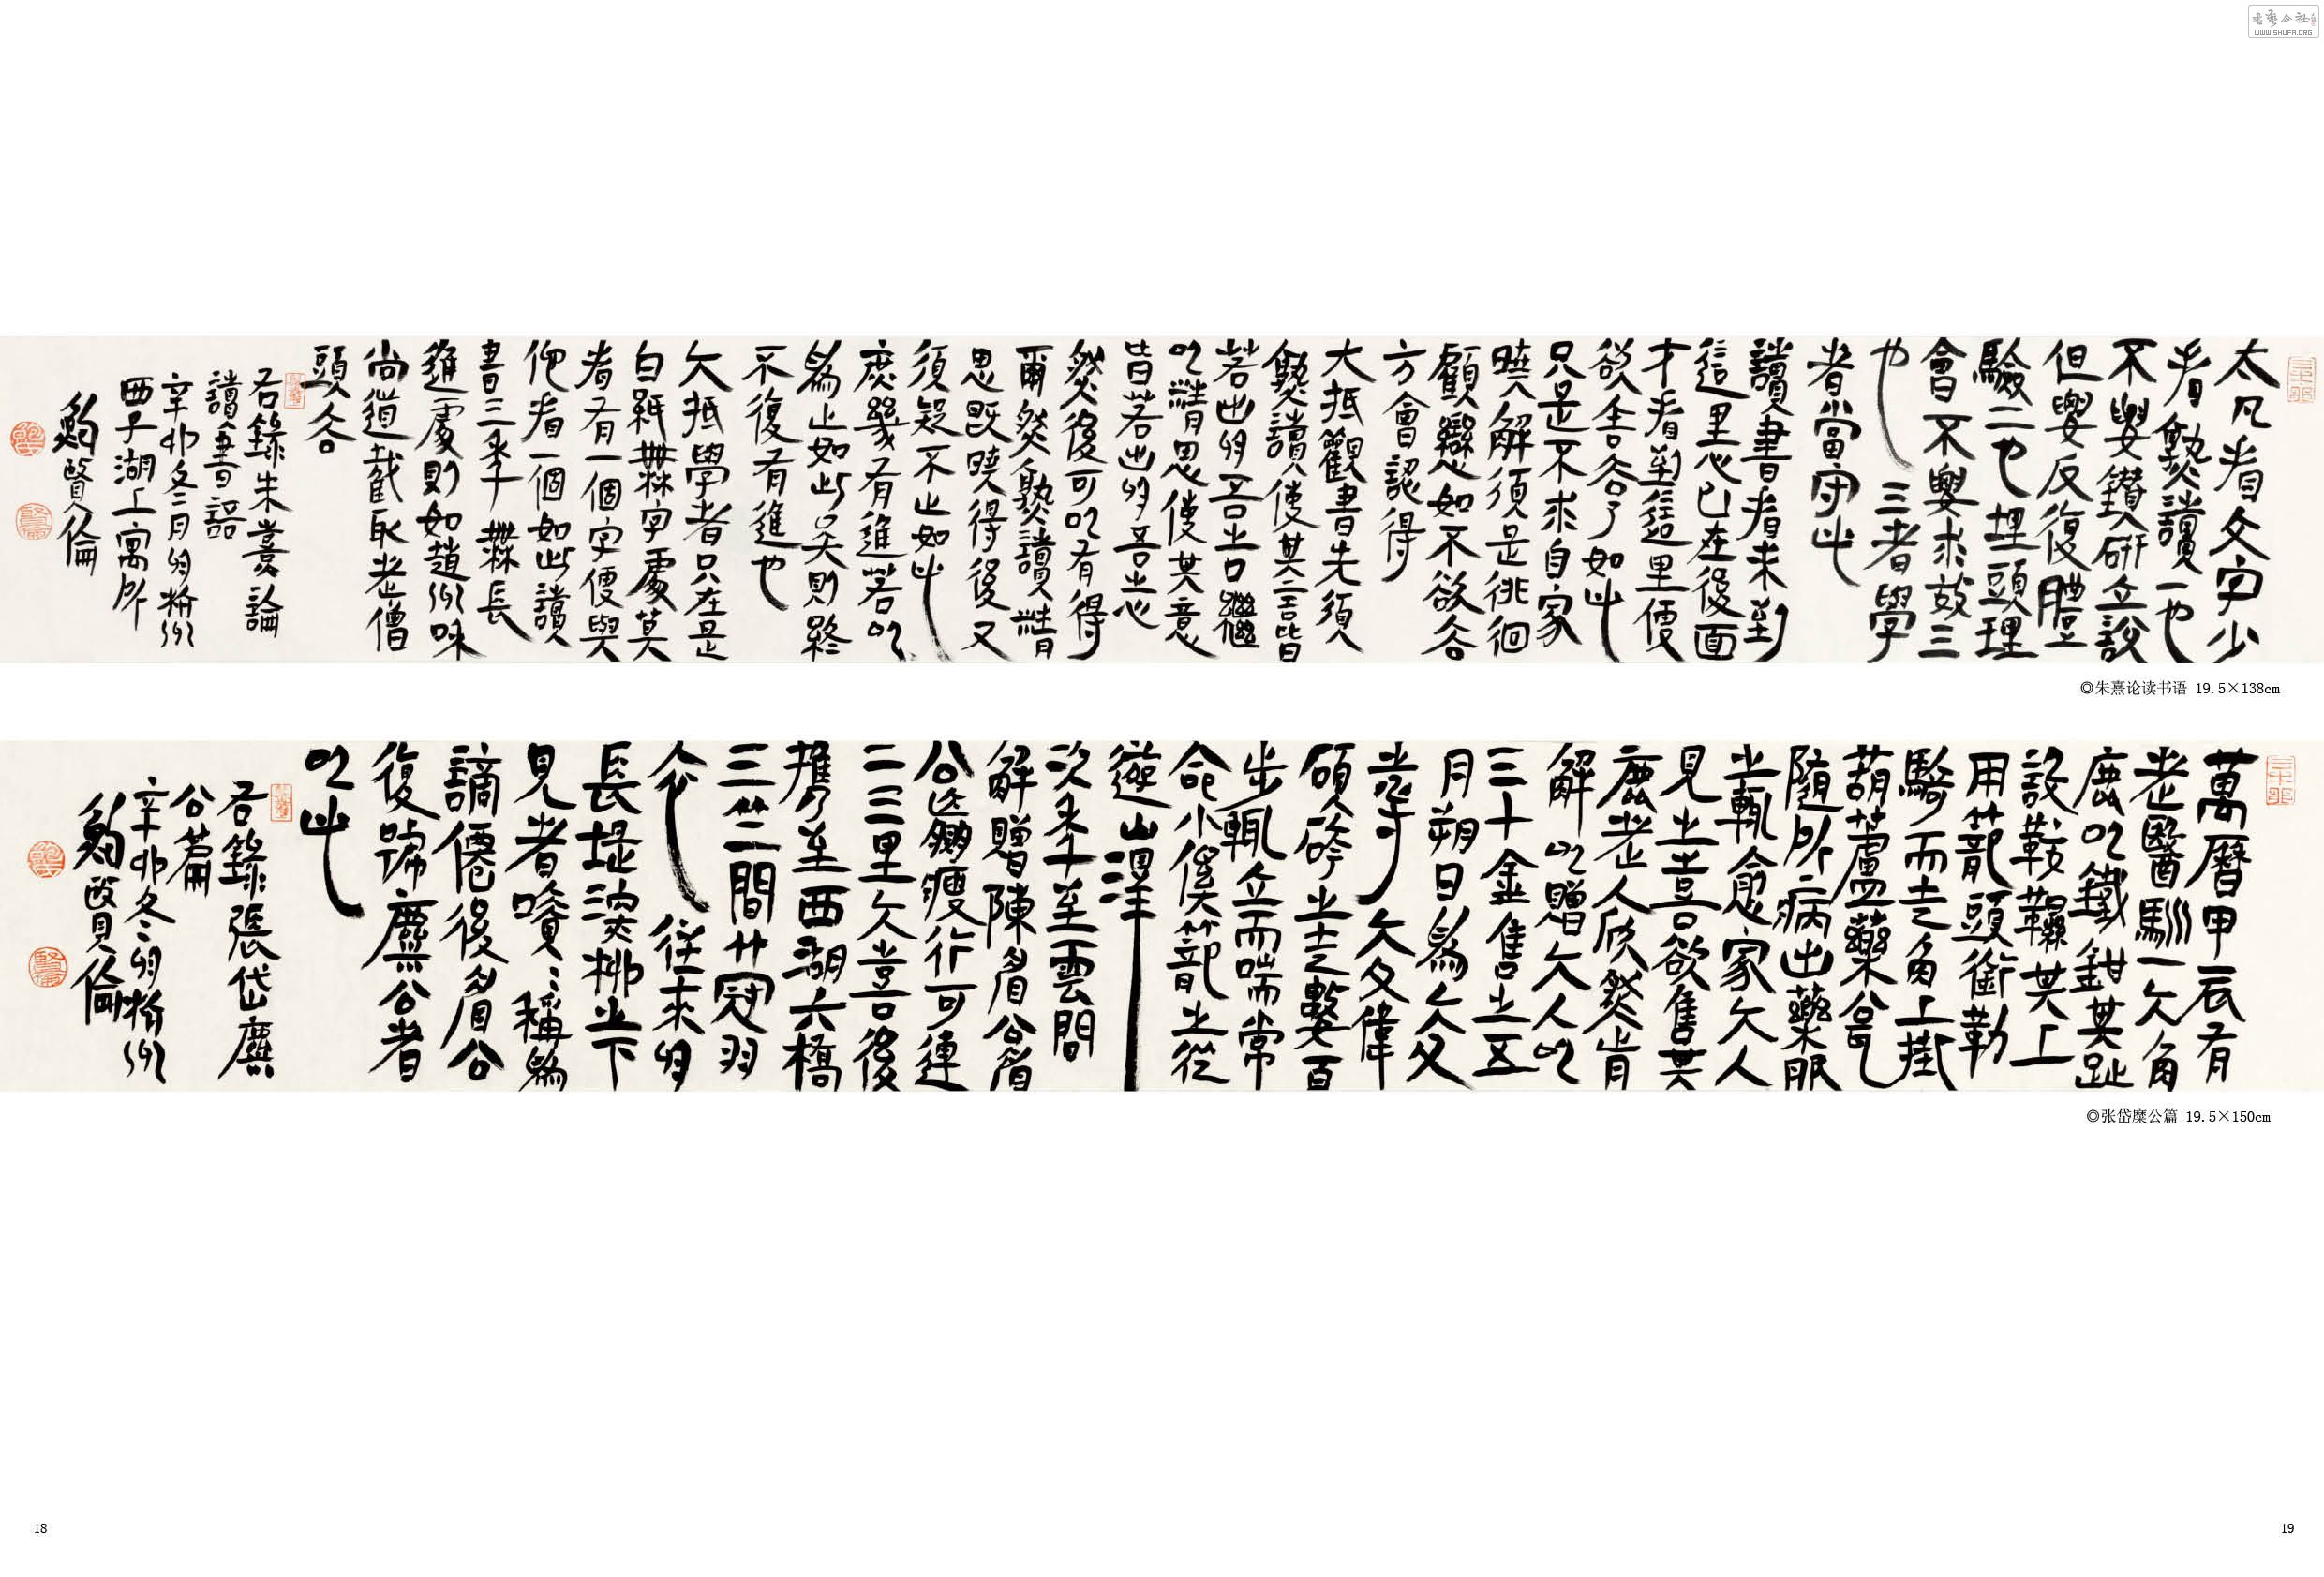 太凡看文字少
看熟讀一也
不要鑽研立説
但要反復體
驗二也埋頭理
會不要求效三
也三者學
者當守此
讀書者未到
這里心已在後面
才看到這里便
欲舍去了如此
只是不求自家
曉解須是徘徊
顧戀如不欲去
方會認得
大抵觀書先須
熟讀使其言皆
若出於吾之口繼
以精思使其意
皆若出於吾之心
然後可以有得
爾然熟讀精
思既曉得後又
須疑不止如此
庶幾有進若以
為止如此矣則終
不復有進也
大抵學者只在是
白紙無字處莫
看有一個字便與
他看一個如此讀
書三年無長
進處則如趙州味
尚道截取老僧
頭去
右錄朱熹論
讀書語
辛卯冬二月於杭州
西子湖上寓所
鮑賢倫
◎朱熹论读书语 19.5×138cm
萬曆甲辰有
老醫馴一大角
鹿以鐵鉗其趾
設鞍韅其上
用篐頭銜勒
騎而走角上掛
葫蘆藥瓮
隨所病出藥服
之輒愈家大人
見之喜欲售其
鹿老人欣然肯
解以贈大人以
三十金售之五
月朔日為大父
壽大父偉
碩跨之走數百
步輒立而喘常
命小傒籠之從
遊山澤
次年至雲間
解贈陳眉公眉
公羸瘦行可連
二三里大喜後
攜至西湖六橋
三竺間竹冠羽
衣往來於
長堤深柳之下
見者嘖嘖稱為
謫僊後眉公
復號麋公者
以此
右錄張岱麋
公篇
辛卯冬冬於杭州
鮑賢倫
◎张岱糜公篇 19.5×150cm
18
19
WWW.SHUFA.ORG